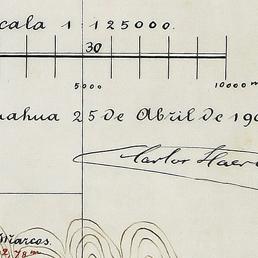 cala 1:125000.
30
5000 10000 m
uahua 25 de Abril de 19
Carlos
Marcos.
2,78 m